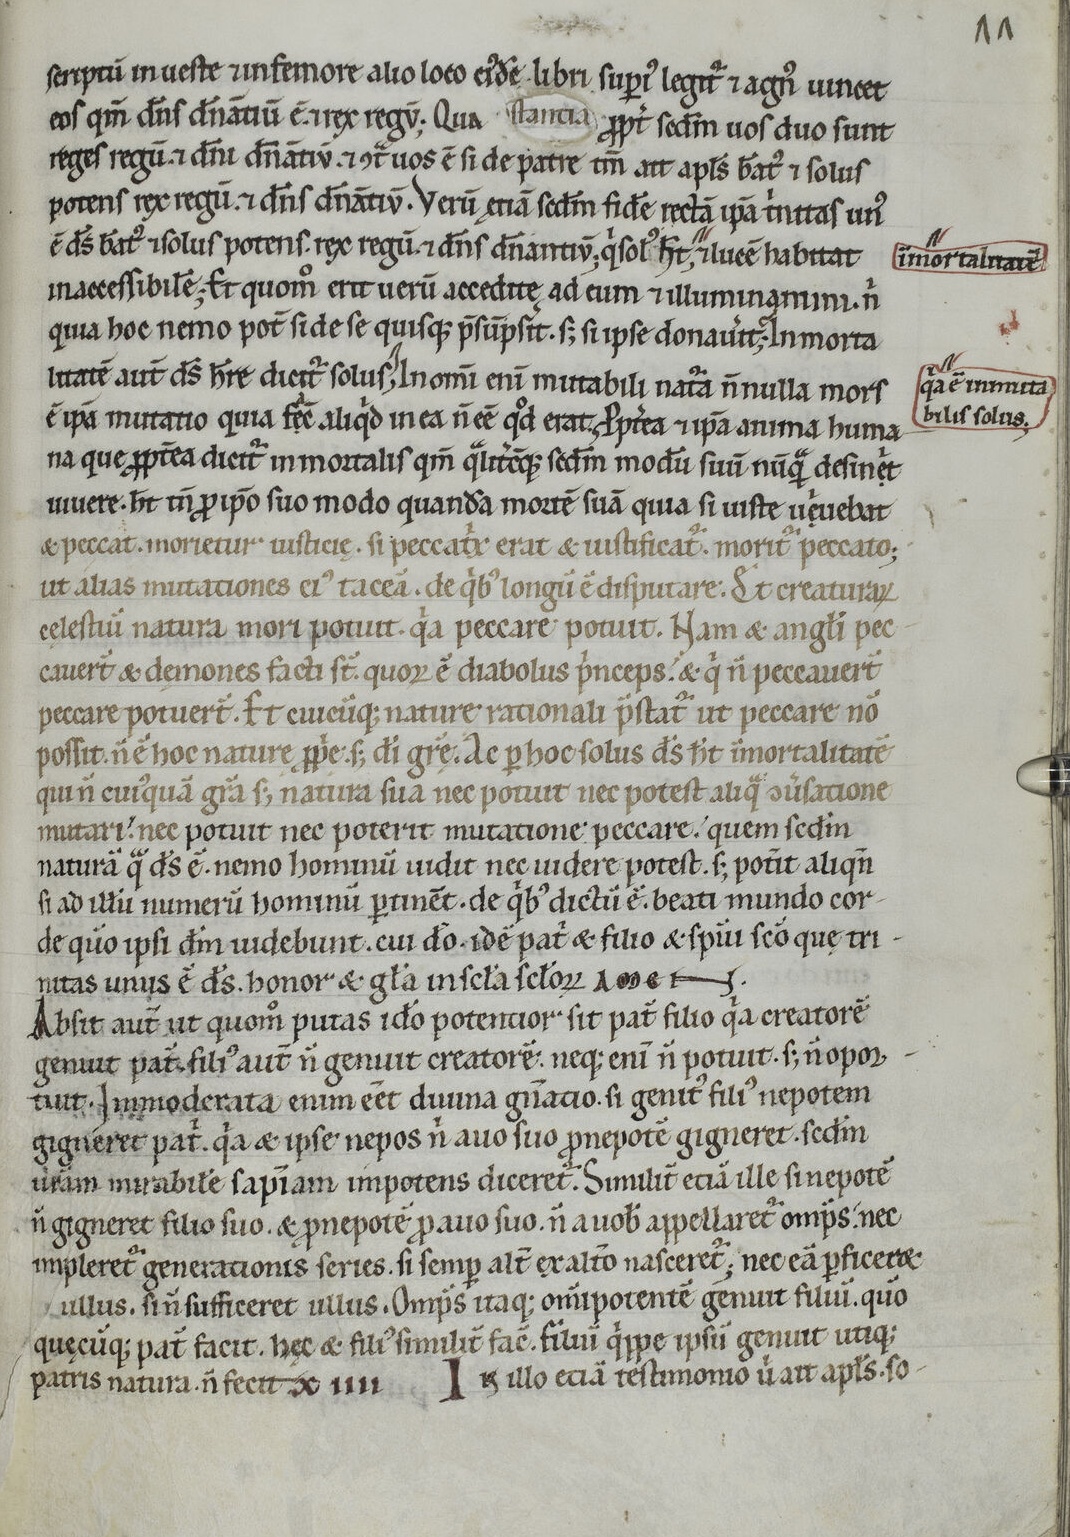 11
scriptū in ueste ⁊ in femore alio loco eiꝰdē libri suꝑiꝰ legit᷑ ⁊ agnꝰ uincet
eos qm̄ dn̄s dn̄atiū ē. ⁊ rex regū; Qua stantia ꝓpt̄ scdm̄ uos duo sunt
reges regū. ⁊ dn̄i dn̄atiū. ⁊ ꝯtͣ uos ē si de patre tm̄ ait apl̄s bat᷑ ⁊ solus
potens rex regū. ⁊ dn̄s dn̄atiū. Verū etiā scdm̄ fidē rectā ipā tⁱnitas unꝰ
ē ds̄ bat᷑ ⁊ solus potens. rex regū. ⁊ dn̄s dn̄antiū; qⁱ solꝰ ht̄; ⁊ lucē habitat
īmortalitatē
inaccessibilē; Et quom̊ erit uerū accedite ad eum ⁊ illuminamini. n̄
quia hoc nemo pot̄ si de se quisqꝫ p̄sūpsit. sꝫ si ipse donauit; Inmorta
litatē aut̄ ds̄ hr̄e dicit᷑ solus; In om̄i enī mutabili natͣa n̄ nulla mors
qͥa ē inmuta
bilis solus.
ē ipā mutatio quia fec̄ aliqͥd in ea n̄ eē qd̄ erat. Ꝓpt̄ea ⁊ ipā anima huma
na que ꝓpt̄ea dicit᷑ inmortalis qm̄ qͣlit̄cūqꝫ scdm̄ modū suū nūqͣ desinet
uiuere. ht̄ tn̄ ꝓ ipo suo modo quanda mortē suā quia si iuste uiuebat
& peccat. morietur iusticię. si peccatͬx erat & iustificat᷑. morit᷑ peccato;
ut alias mutationes eiꝰ taceā. de qͥbꝰ longū ē disputare. Et creaturaꝝ
celestiū natura mori potuit. qͥa peccare potuit. Nam & angl̄i pec
cauer̄t & demones facti st̄. quoꝝ ē diabolus pͥnceps. & qͥ n̄ peccauer̄t
peccare potuer̄t. Et cuicūqꝫ nature rationali p̄stat᷑ ut peccare nō
possit. n̄ ē hoc naturę ꝓpͥe. sꝫ di gr̄ę. Ac ꝑ hoc solus ds̄ ht̄ īmortalitatē
qui n̄ cuiꝰquā gr̄a sꝫ natura sua nec potuit nec potest aliqͣ ꝯuͥsatione
mutari. nec potuit nec poterit mutatione peccare. quem scdm̄
naturā qͣ ds̄ ē. nemo hominū uidit nec uidere potest. sꝫ pot̄it aliqn̄
si ad illū numerū hominū ꝑtinet̄. de qͥbꝰ dictū ē. beati mundo cor-
de qūo ipsi dm̄ uidebunt. cui dō. idē patͥ & filio & spūi sc̄o quę tri-
nitas unus ē ds̄. honor & gl̄a in scl̄a scl̄oꝝ AMEN.
Absit aut̄ ut quom̊ putas idō potentior sit pat̄ filio qͥa creatorē
genuit pat̄. filiꝰ aut̄ n̄ genuit creatorē. neqꝫ enī n̄ potuit. sꝫ n̄ opor-
tuit. Immoderata enim eēt diuina gn̄atio. si genitꝰ filiꝰ nepotem
gigneret patͥ. qͥa & ipse nepos n̄ auo suo ꝓnepotē gigneret. scdm̄
ur̄am mirabilē sapīam impotens diceret᷑. Similit̄ etiā ille si nepotē
n̄ gigneret filio suo. & ꝓnepotē ꝓauo suo. n̄ a uob̄ appellaret᷑ omp̄s. nec
impleret᷑ generationis series. si semꝑ alt̄ ex alt̄o nasceret᷑; nec eā ꝑficeret
ullus. si n̄ sufficeret ullus. Omp̄s itaqꝫ om̄ipotentē genuit filiū. qūo
quęcūqꝫ pat̄ facit. hęc & filiꝰ similit̄ fac̄. filiū qͥppe ipsū genuit utiqꝫ
patris natura. n̄ fecit XIIII In illo etiā testimonio uͥ ait apl̄s. so-